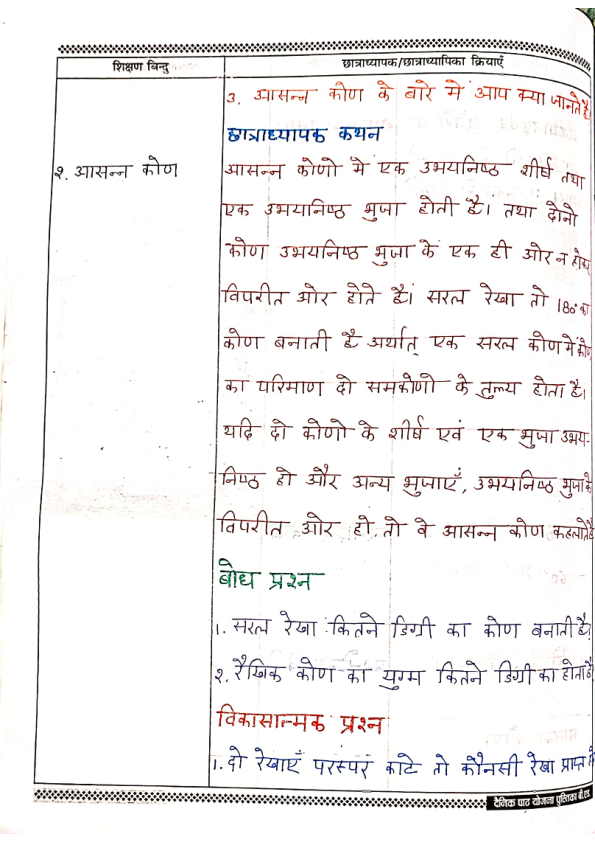 शिक्षण बिन्दु
छात्राध्यापक/छात्राध्यापिका क्रियाएँ
3. आसन्न कोण के बारे में आप क्या जानते है।
छात्राध्यापक कथन
२. आसन्न कोण
आसन्न कोणो मे एक उभयनिष्ठ शीर्ष तथा
एक उभयनिष्ठ भुजा होती है। तथा दोनो
कोण उभयनिष्ठ भुजा के एक ही ओर न होकर
विपरीत ओर होते है। सरल रेखा तो 180° का
कोण बनाती है अर्थात् एक सरल कोण में कोण
का परिमाण दो समकोणो के तुल्य होता है।
यदि दो कोणो के शीर्ष एवं एक भुजा उभय-
निष्ठ हो और अन्य भुजाएँ, उभयनिष्ठ भुजा के
विपरीत ओर हो, तो वे आसन्न कोण कहलाते है
बोध प्रश्न
1. सरल रेखा कितने डिग्री का कोण बनाती है?
२. रैखिक कोण का युग्म कितने डिग्री का होता है
विकासात्मक प्रश्न
1. दो रेखाएँ परस्पर काटे तो कौनसी रेखा प्राप्त
दैनिक पाठ योजना पुस्तिका बी.एड.